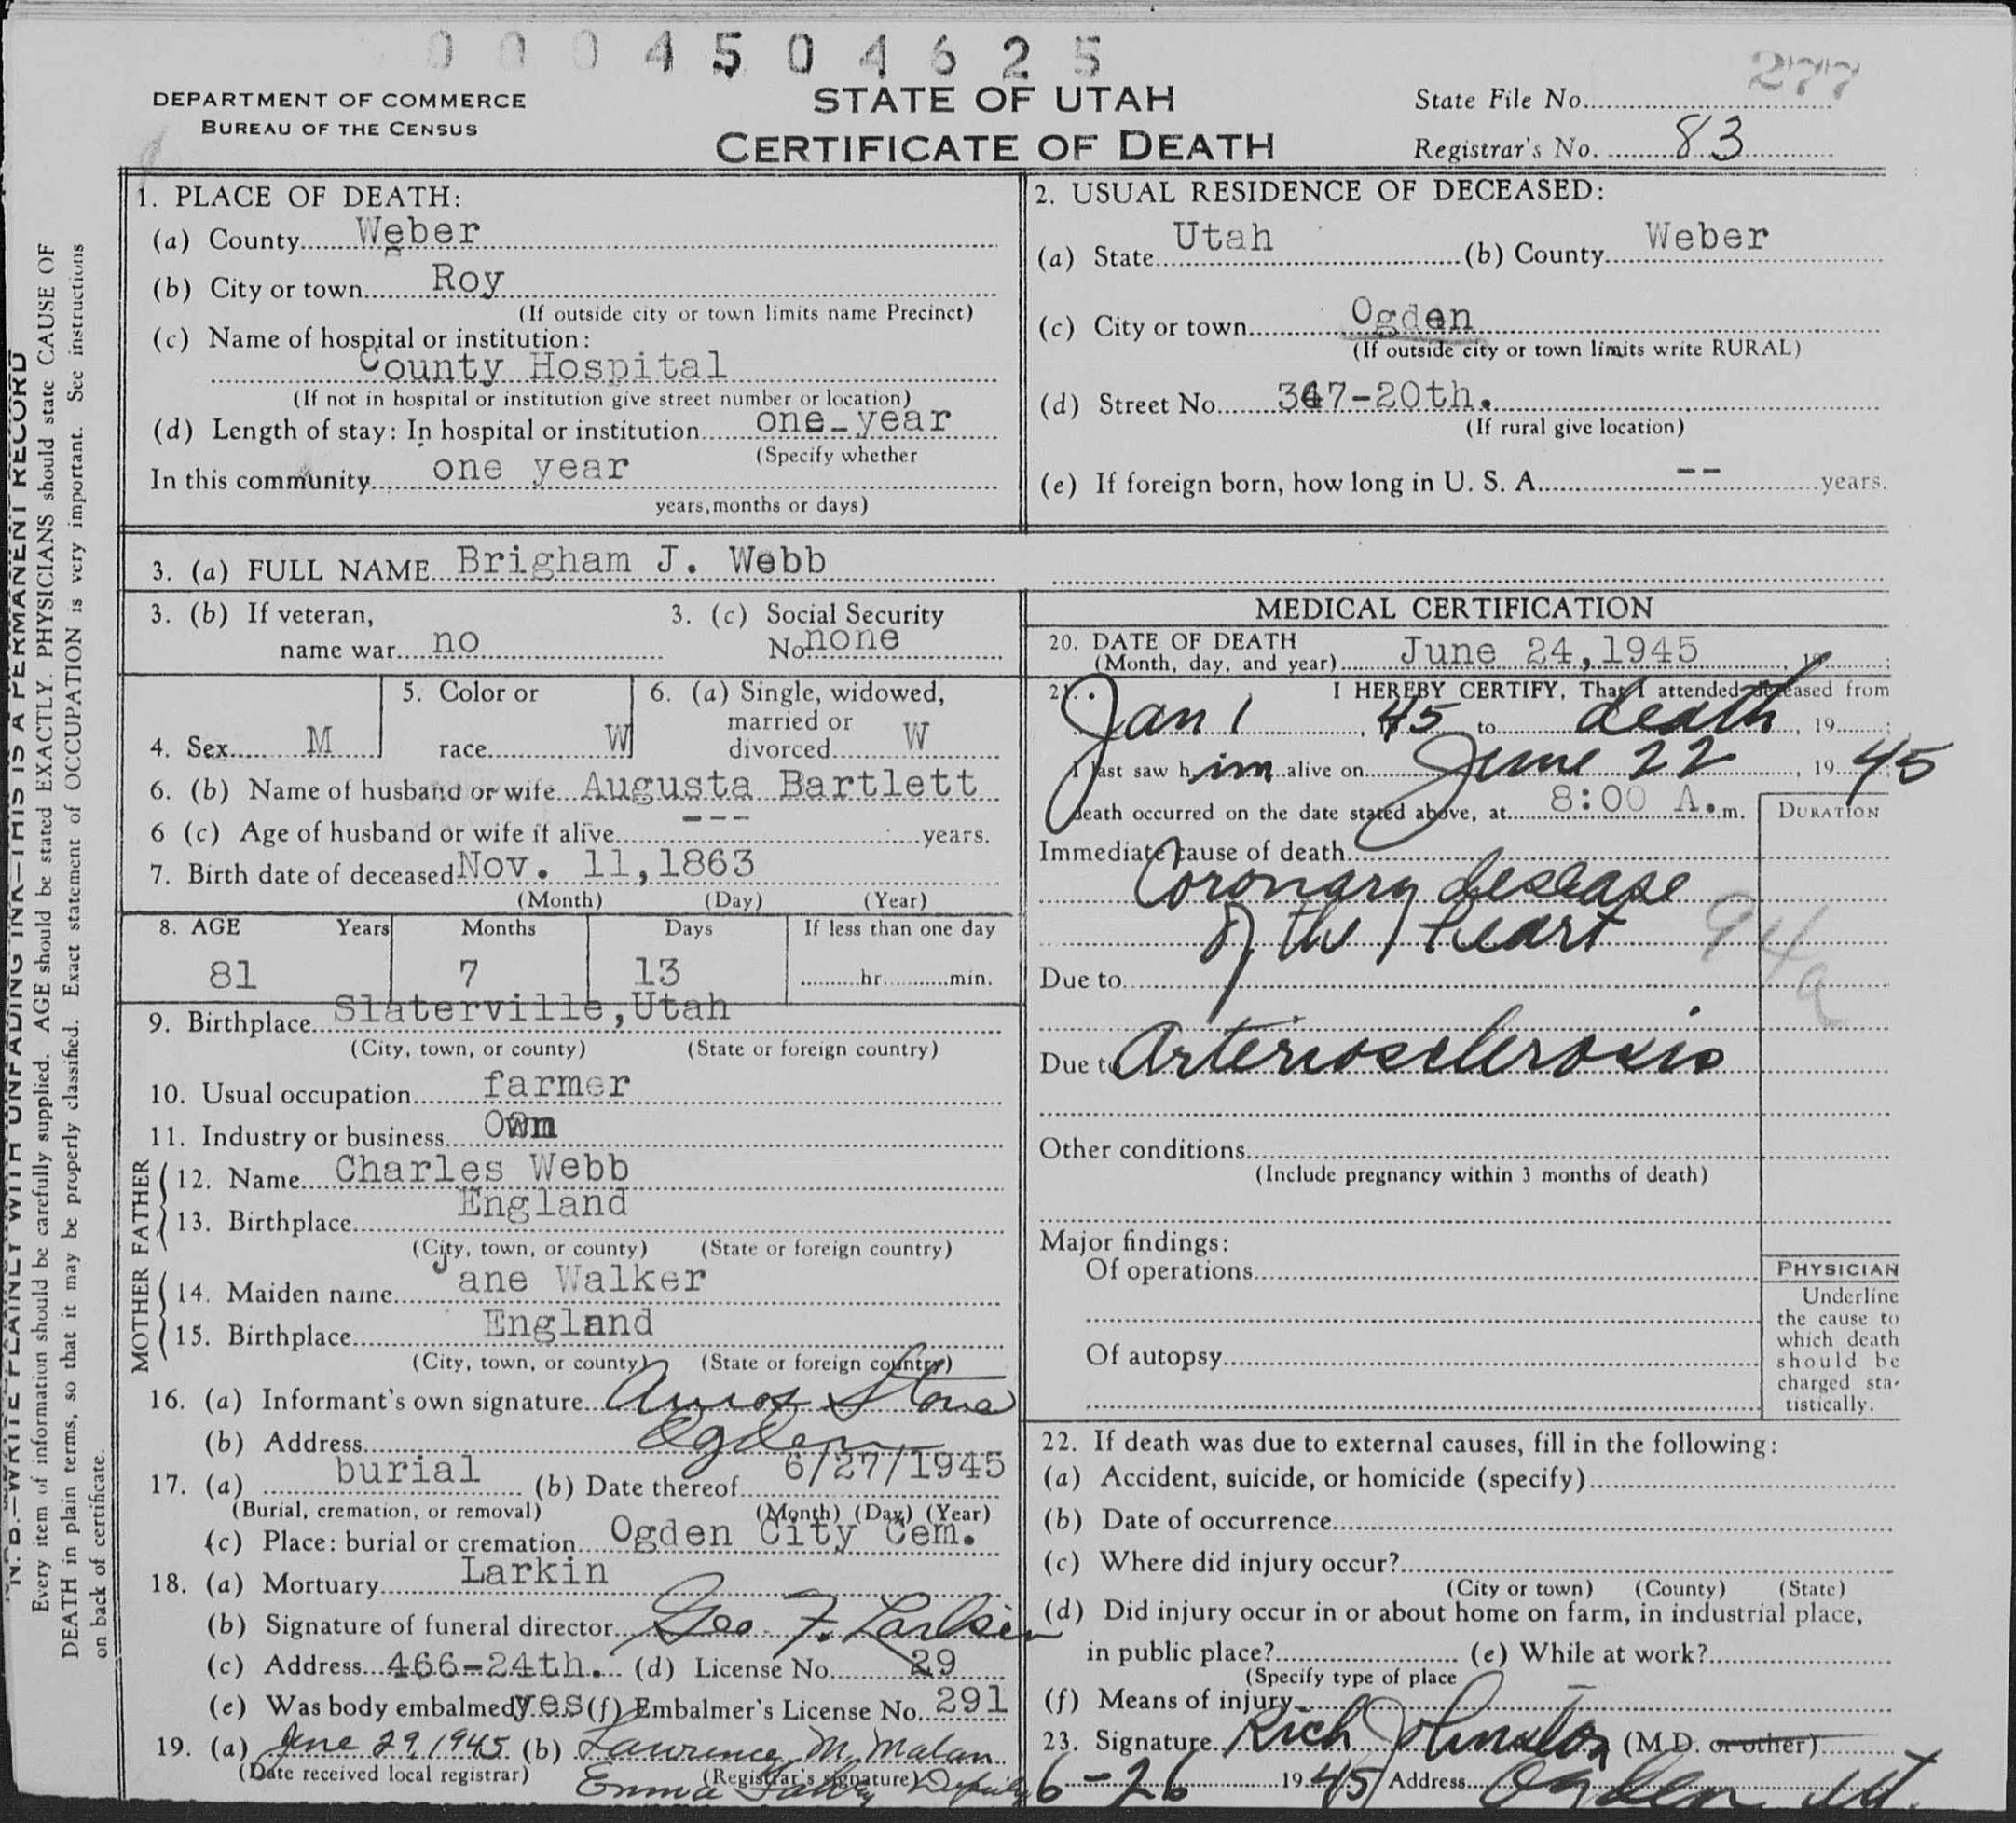 0 0 0 4 5 0 4 6 2 5
277
DEPARTMENT OF COMMERCE
BUREAU OF THE CENSUS
STATE OF UTAH
CERTIFICATE OF DEATH
State File No.
Registrar's No. 83
N. B.—WRITE PLAINLY WITH UNFADING INK—THIS IS A PERMANENT RECORD
Every item of information should be carefully supplied. AGE should be stated EXACTLY. PHYSICIANS should state CAUSE OF
DEATH in plain terms, so that it may be properly classified. Exact statement of OCCUPATION is very important. See instructions
on back of certificate.
1. PLACE OF DEATH:
(a) County Weber
(b) City or town Roy
(If outside city or town limits name Precinct)
(c) Name of hospital or institution:
County Hospital
(If not in hospital or institution give street number or location)
(d) Length of stay: In hospital or institution one year
(Specify whether
In this community one year
years, months or days)
2. USUAL RESIDENCE OF DECEASED:
(a) State Utah (b) County Weber
(c) City or town Ogden
(If outside city or town limits write RURAL)
(d) Street No. 347-20th.
(If rural give location)
(e) If foreign born, how long in U. S. A. -- years.
3. (a) FULL NAME Brigham J. Webb
3. (b) If veteran,
name war no
3. (c) Social Security
No. none
4. Sex M
5. Color or
race W
6. (a) Single, widowed,
married or
divorced W
6. (b) Name of husband or wife Augusta Bartlett
6 (c) Age of husband or wife if alive --- years.
7. Birth date of deceased Nov. 11, 1863
(Month) (Day) (Year)
8. AGE Years Months Days If less than one day
81 7 13 hr. min.
9. Birthplace Slaterville, Utah
(City, town, or county) (State or foreign country)
10. Usual occupation farmer
11. Industry or business Own
FATHER
12. Name Charles Webb
13. Birthplace England
(City, town, or county) (State or foreign country)
MOTHER
14. Maiden name Jane Walker
15. Birthplace England
(City, town, or county) (State or foreign country)
16. (a) Informant's own signature Amos Stone
(b) Address Ogden
17. (a) burial (b) Date thereof 6/27/1945
(Burial, cremation, or removal) (Month) (Day) (Year)
(c) Place: burial or cremation Ogden City Cem.
18. (a) Mortuary Larkin
(b) Signature of funeral director Geo. F. Larkin
(c) Address 466-24th. (d) License No. 29
(e) Was body embalmed yes (f) Embalmer's License No. 291
19. (a) June 29, 1945 (b) Lawrence M. Malan
(Date received local registrar) (Registrar's signature)
Emma Deputy
MEDICAL CERTIFICATION
20. DATE OF DEATH
(Month, day, and year) June 24, 1945, 19
21. I HEREBY CERTIFY, That I attended deceased from
Jan 1, 45 to death, 19
I last saw him alive on June 22, 1945
death occurred on the date stated above, at 8:00 A.m.
DURATION
Immediate cause of death
Coronary disease
of the heart
94a
Due to
Due to Arteriosclerosis
Other conditions
(Include pregnancy within 3 months of death)
Major findings:
Of operations
Of autopsy
PHYSICIAN
Underline
the cause to
which death
should be
charged sta-
tistically.
22. If death was due to external causes, fill in the following:
(a) Accident, suicide, or homicide (specify)
(b) Date of occurrence
(c) Where did injury occur?
(City or town) (County) (State)
(d) Did injury occur in or about home on farm, in industrial place,
in public place? (e) While at work?
(Specify type of place
(f) Means of injury
23. Signature Rich Johnston (M.D. or other)
6-26 1945 Address Ogden Ut.